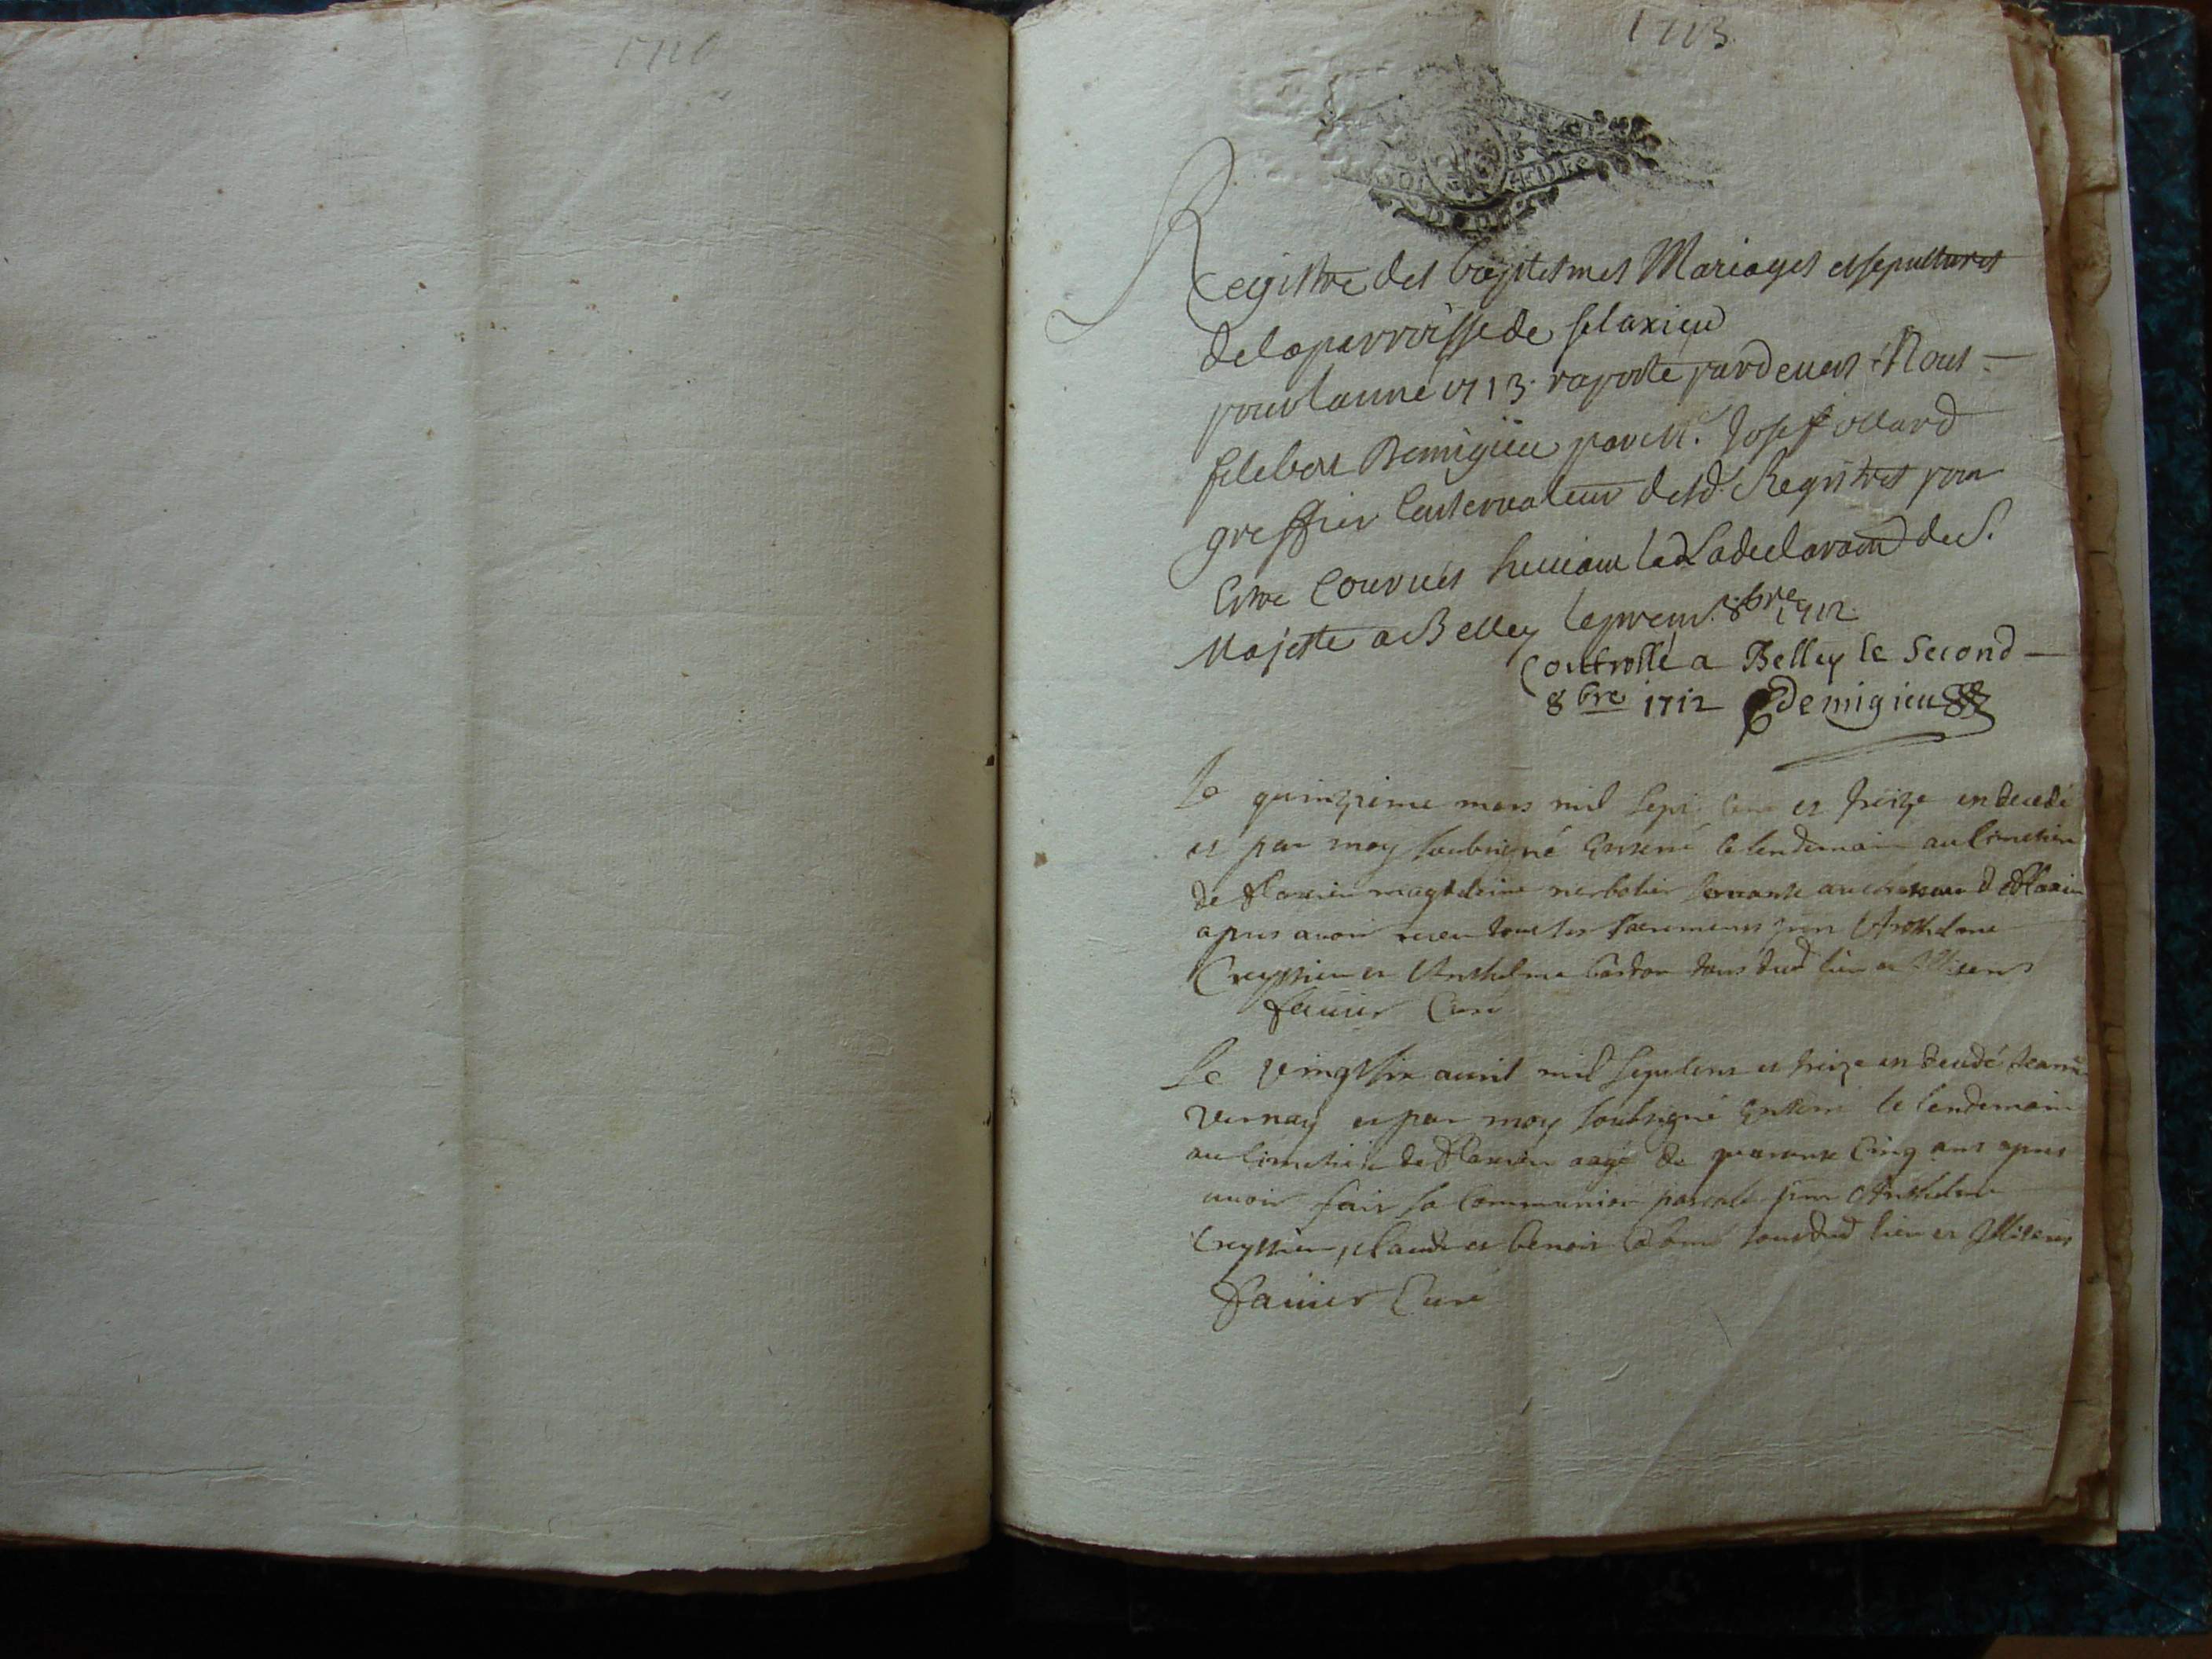 1713
Registre des baptesmes Mariages et sepultures
de la parroisse de flaxieu
pour lanné 1713. raporté pardevers Nous
par Mr. Josep ollard
greffier Conservateur desd. Registres pour
Estre suivant la declaraon de S.
Majeste a Belley le premr. 8bre 1712
Controllé a Belley le Second
8bre 1712 Demigieu
Le quinzieme mars mil sept cent et treize est decedé
et par moy soubsigné enterré le lendemain au cimetiere
de flaxieu magdelaine servante au de flaxieu
apres avoir receu tous les sacremens pnt Anthelme
Creyssieu et Anthelme tous dud lieu et
favier Curé
Le vingt six avril mil sept cens et treize est decedé
Vernay et par moy soubsigné enterré le lendemain
au cimetiere de flaxieu aagé de quarante cinq ans apres
avoir fait sa communion pascale pnt Anthelme
Creyssieu, claude et benoit tous dud lieu et
favier Curé